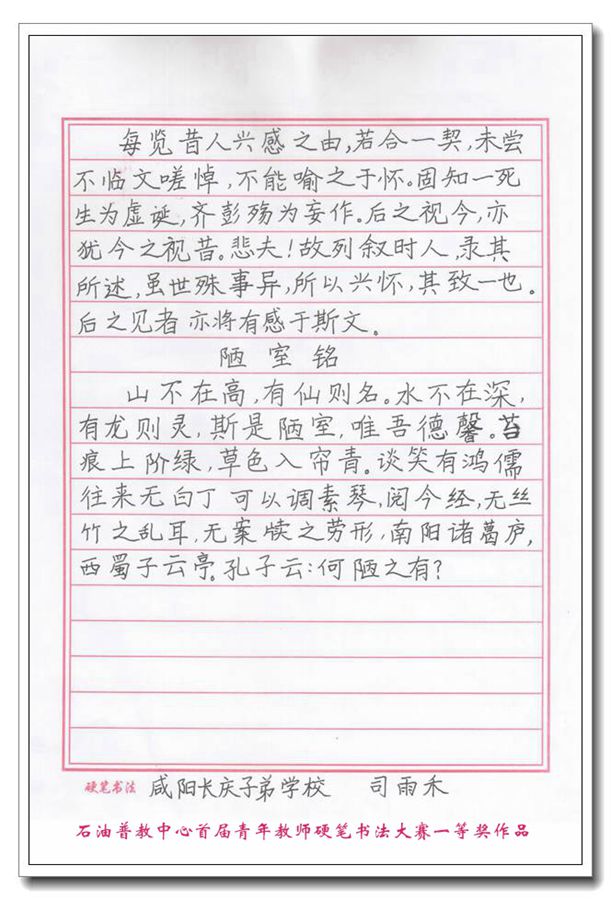 每览昔人兴感之由,若合一契,未尝
不临文嗟悼,不能喻之于怀。固知一死
生为虚诞,齐彭殇为妄作。后之视今,亦
犹今之视昔。悲夫!故列叙时人,录其
所述,虽世殊事异,所以兴怀,其致一也。
后之见者 亦将有感于斯文。
陋室铭
山不在高,有仙则名。水不在深,
有龙则灵,斯是陋室,唯吾德馨。苔
痕上阶绿,草色入帘青。谈笑有鸿儒
往来无白丁 可以调素琴,阅今经,无丝
竹之乱耳,无案牍之劳形,南阳诸葛庐,
西蜀子云亭。孔子云:何陋之有?
硬笔书法 咸阳长庆子弟学校 司雨禾
石油普教中心首届青年教师硬笔书法大赛一等奖作品